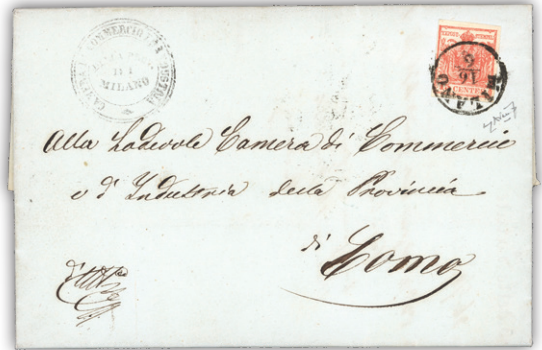 CAMERA COMMERCIO ED INDUSTRIA
DI
MILANO
CENTES
MILANO
16
9
Alla Lodevole Camera di Commercio
e d'Industria della Provincia
di
Como